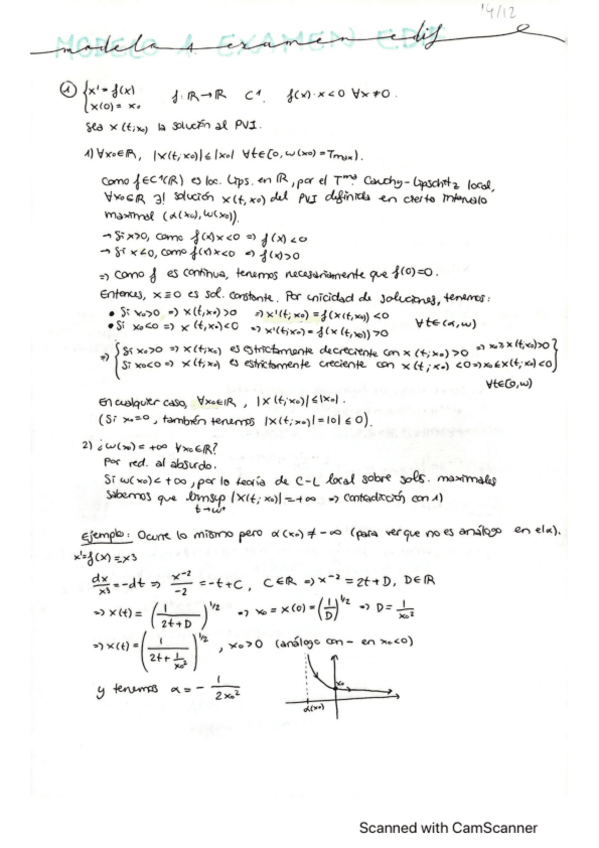 14/12
modelo 1 examen edif
① { x' = f(x)   f: ℝ → ℝ   C¹.   f(x)·x < 0 ∀x ≠ 0.
x(0) = x₀
Sea x(t;x₀) la solución al PVI.
1) ∀x₀∈ℝ, |x(t;x₀)| ≤ |x₀| ∀t∈[0, ω(x₀) = Tmax).
Como f∈C¹(ℝ) es loc. Lips. en ℝ, por el Tma. Cauchy-Lipschitz local,
∀x₀∈ℝ ∃! solución x(t,x₀) del PVI definida en cierto intervalo
maximal (α(x₀), ω(x₀)).
→ Si x>0, como f(x)x<0 ⇒ f(x)<0
→ Si x<0, como f(x)x<0 ⇒ f(x)>0
⇒ Como f es continua, tenemos necesariamente que f(0)=0.
Entonces, x≡0 es sol. constante. Por unicidad de soluciones, tenemos:
• Si x₀>0 ⇒ x(t;x₀)>0 ⇒ x'(t;x₀) = f(x(t;x₀)) < 0
• Si x₀<0 ⇒ x(t;x₀)<0 ⇒ x'(t;x₀) = f(x(t;x₀)) > 0   ∀t∈(α,ω)
⇒ { Si x₀>0 ⇒ x(t;x₀) es estrictamente decreciente con x(t;x₀)>0 ⇒ x₀≥x(t;x₀)>0 }
Si x₀<0 ⇒ x(t;x₀) es estrictamente creciente con x(t;x₀)<0 ⇒ x₀≤x(t;x₀)<0 }
∀t∈[0,ω)
En cualquier caso, ∀x₀∈ℝ, |x(t;x₀)| ≤ |x₀|.
(Si x₀=0, también tenemos |x(t;x₀)| = |0| ≤ 0).
2) ¿ω(x₀) = +∞ ∀x₀∈ℝ?
Por red. al absurdo.
Si ω(x₀) < +∞, por la teoría de C-L local sobre sols. maximales
sabemos que limsup |x(t;x₀)| = +∞ ⇒ Contradicción con 1)
t→ω⁻
Ejemplo: Ocurre lo mismo pero α(x₀) ≠ -∞ (para ver que no es análogo en el α).
x' = f(x) = x³
dx/x³ = -dt ⇒ x⁻²/-2 = -t + C, C∈ℝ ⇒ x⁻² = 2t + D, D∈ℝ
⇒ x(t) = (1/(2t+D))^1/2 ⇒ x₀ = x(0) = (1/D)^1/2 ⇒ D = 1/x₀²
⇒ x(t) = (1/(2t + 1/x₀²))^1/2, x₀>0 (análogo con - en x₀<0)
y tenemos α = - 1/2x₀²
x₀
α(x₀)
Scanned with CamScanner